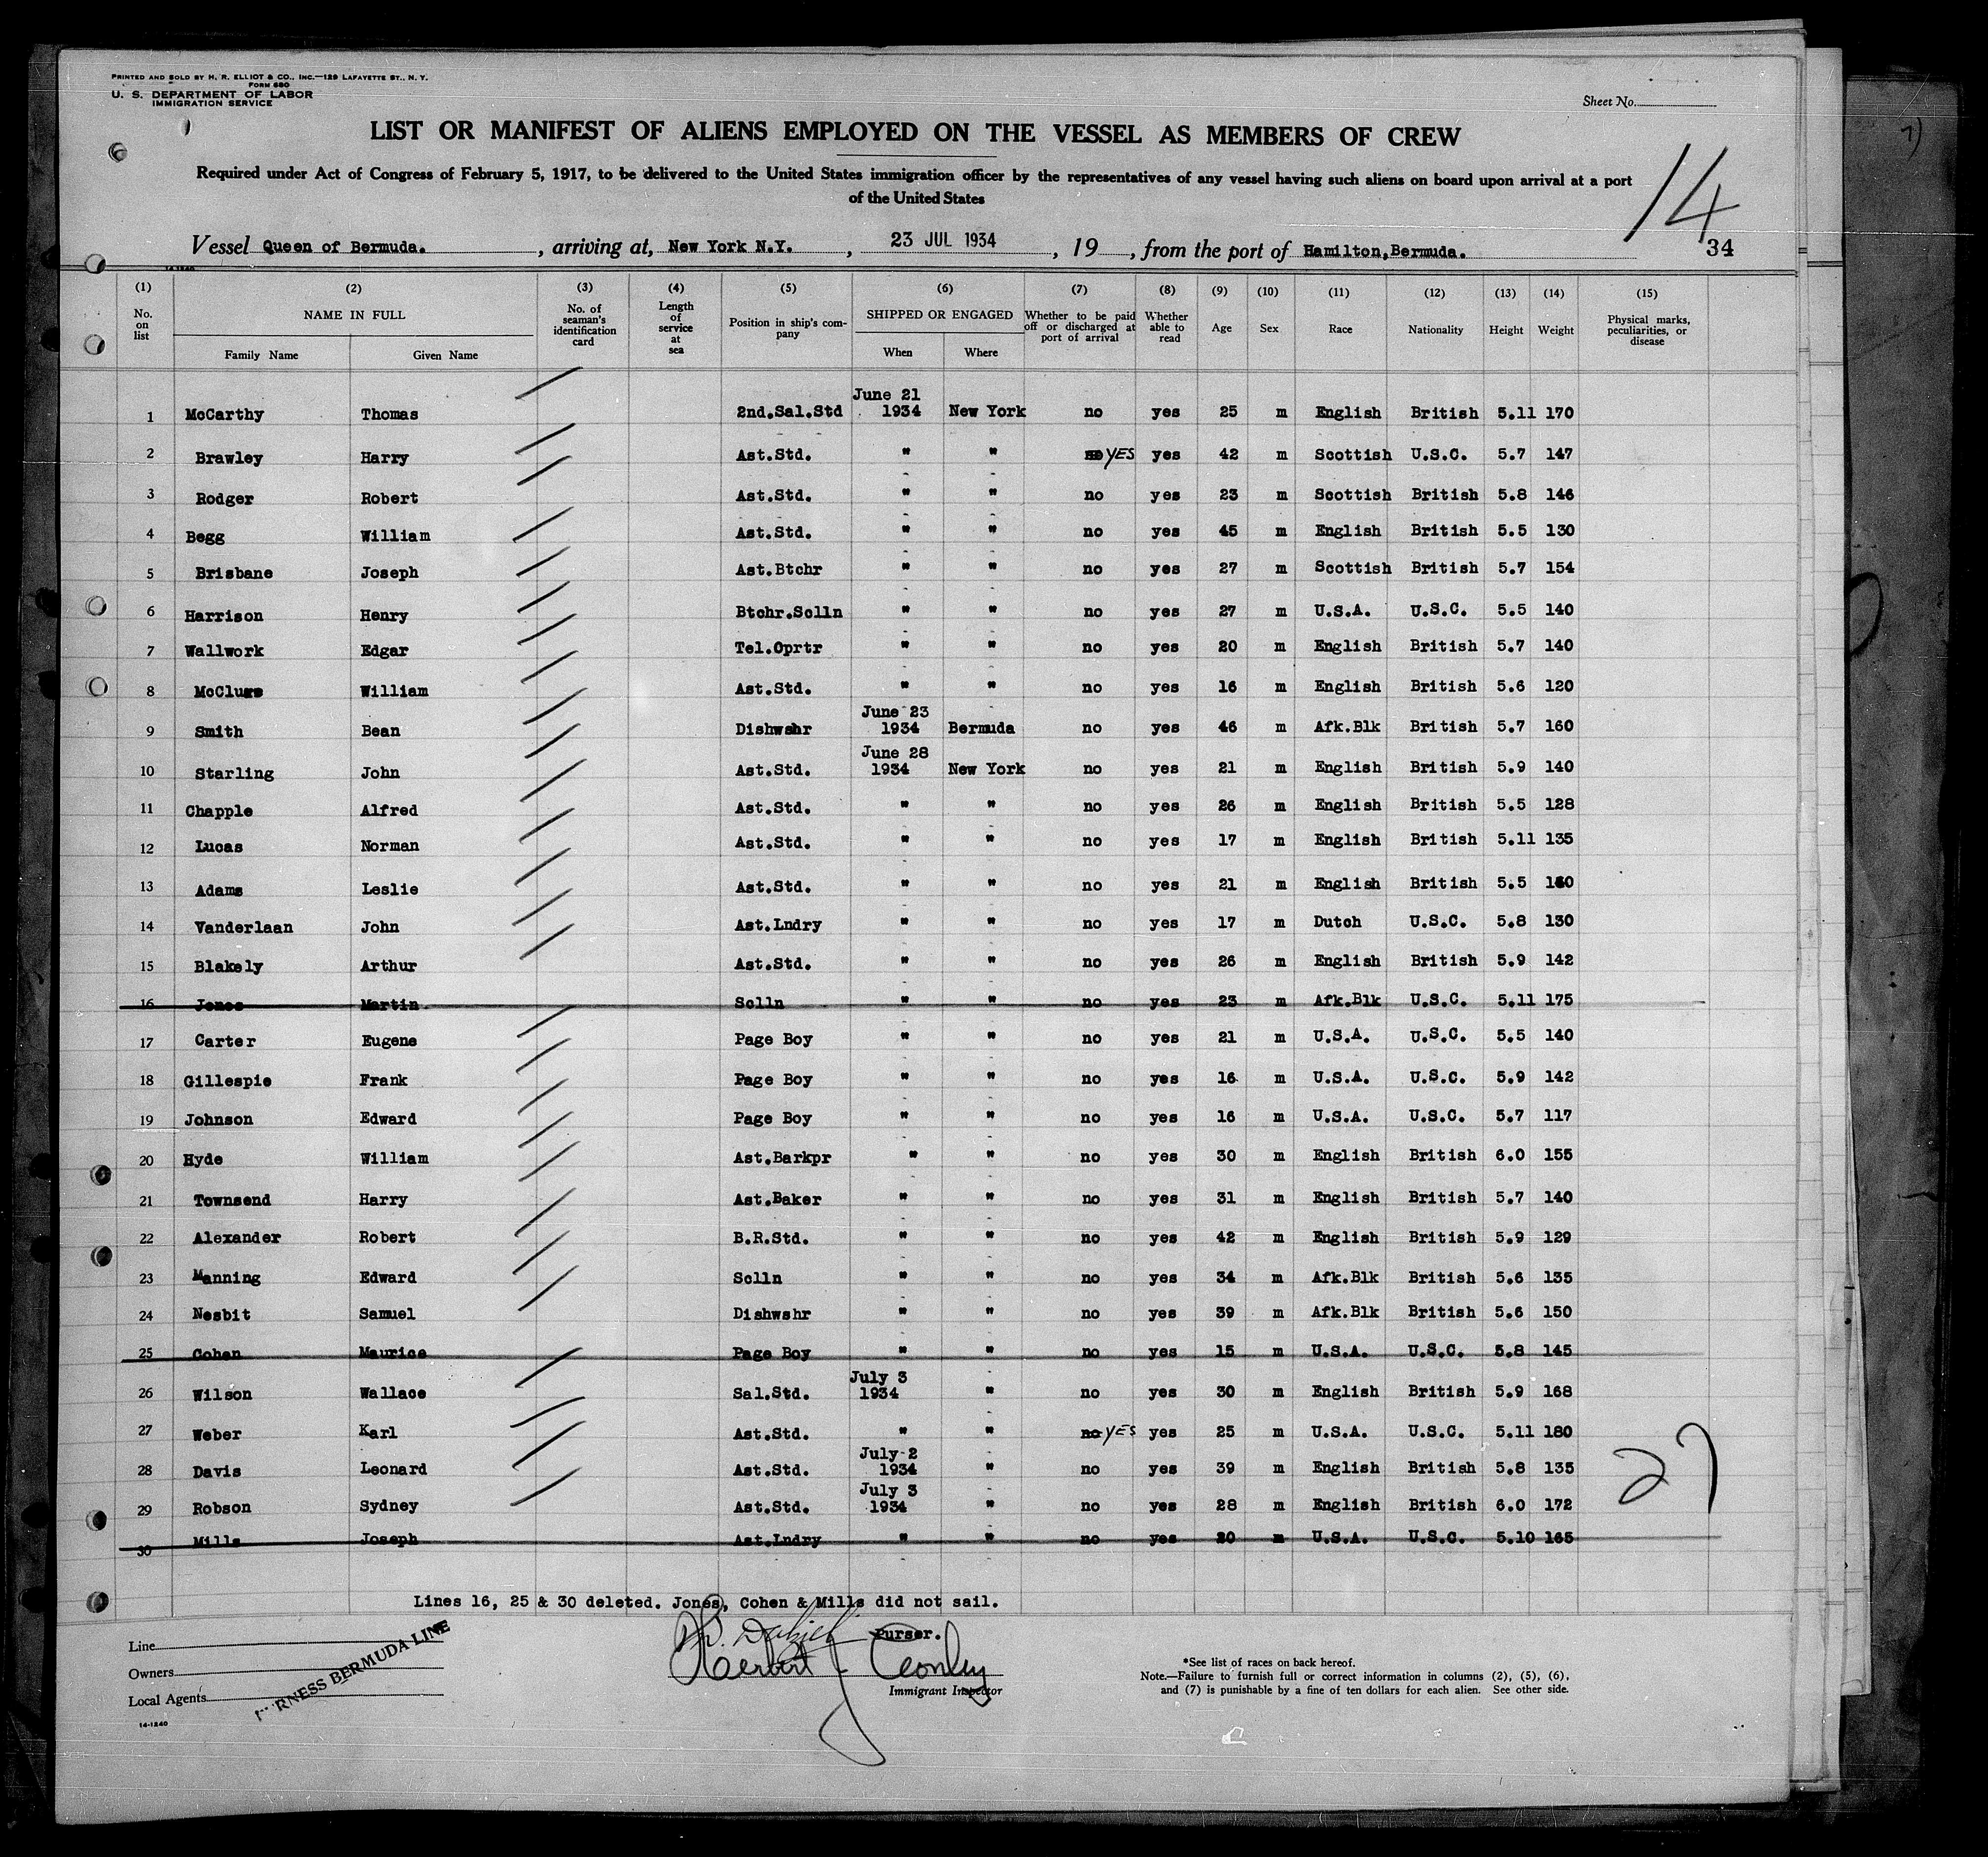 PRINTED AND SOLD BY H. R. ELLIOT & CO., INC.—129 LAFAYETTE ST., N. Y.
FORM 680
U. S. DEPARTMENT OF LABOR
IMMIGRATION SERVICE
Sheet No.
LIST OR MANIFEST OF ALIENS EMPLOYED ON THE VESSEL AS MEMBERS OF CREW
Required under Act of Congress of February 5, 1917, to be delivered to the United States immigration officer by the representatives of any vessel having such aliens on board upon arrival at a port
of the United States
14
Vessel Queen of Bermuda. , arriving at, New York N.Y. , 23 JUL 1934 , 19 , from the port of Hamilton, Bermuda. 34
14-1240
(1) No. on list (2) NAME IN FULL Family Name Given Name (3) No. of seaman's identification card (4) Length of service at sea (5) Position in ship's company (6) SHIPPED OR ENGAGED When Where (7) Whether to be paid off or discharged at port of arrival (8) Whether able to read (9) Age (10) Sex (11) Race (12) Nationality (13) Height (14) Weight (15) Physical marks, peculiarities, or disease
1 McCarthy Thomas 2nd.Sal.Std June 21 1934 New York no yes 25 m English British 5.11 170
2 Brawley Harry Ast.Std. " " no YES yes 42 m Scottish U.S.C. 5.7 147
3 Rodger Robert Ast.Std. " " no yes 23 m Scottish British 5.8 146
4 Begg William Ast.Std. " " no yes 45 m English British 5.5 130
5 Brisbane Joseph Ast.Btchr " " no yes 27 m Scottish British 5.7 154
6 Harrison Henry Btchr.Sclln " " no yes 27 m U.S.A. U.S.C. 5.5 140
7 Wallwork Edgar Tel.Oprtr " " no yes 20 m English British 5.7 140
8 McClure William Ast.Std. " " no yes 16 m English British 5.6 120
9 Smith Bean Dishwshr June 23 1934 Bermuda no yes 46 m Afk.Blk British 5.7 160
10 Starling John Ast.Std. June 28 1934 New York no yes 21 m English British 5.9 140
11 Chapple Alfred Ast.Std. " " no yes 26 m English British 5.5 128
12 Lucas Norman Ast.Std. " " no yes 17 m English British 5.11 135
13 Adams Leslie Ast.Std. " " no yes 21 m English British 5.5
14 Vanderlaan John Ast.Lndry " " no yes 17 m Dutch U.S.C. 5.8 130
15 Blakely Arthur Ast.Std. " " no yes 26 m English British 5.9 142
16 Jones Martin Sclln " " no yes 23 m Afk.Blk U.S.C. 5.11 175
17 Carter Eugene Page Boy " " no yes 21 m U.S.A. U.S.C. 5.5 140
18 Gillespie Frank Page Boy " " no yes 16 m U.S.A. U.S.C. 5.9 142
19 Johnson Edward Page Boy " " no yes 16 m U.S.A. U.S.C. 5.7 117
20 Hyde William Ast.Barkpr " " no yes 30 m English British 6.0 155
21 Townsend Harry Ast.Baker " " no yes 31 m English British 5.7 140
22 Alexander Robert B.R.Std. " " no yes 42 m English British 5.9 129
23 Manning Edward Sclln " " no yes 34 m Afk.Blk British 5.6 135
24 Nesbit Samuel Dishwshr " " no yes 39 m Afk.Blk British 5.6 150
25 Cohen Maurice Page Boy " " no yes 15 m U.S.A. U.S.C. 5.8 145
26 Wilson Wallace Sal.Std. July 3 1934 " no yes 30 m English British 5.9 168
27 Weber Karl Ast.Std. " " no YES yes 25 m U.S.A. U.S.C. 5.11 180
28 Davis Leonard Ast.Std. July 2 1934 " no yes 39 m English British 5.8 135
29 Robson Sydney Ast.Std. July 3 1934 " no yes 28 m English British 6.0 172
30 Mills Joseph Ast.Lndry " " no yes m U.S.A. U.S.C. 5.10 165
27
Lines 16, 25 & 30 deleted. Jones, Cohen & Mills did not sail.
Purser.
Herbert Conley
Immigrant Inspector
Line
Owners
Local Agents
RNESS BERMUDA LINE
14-1240
*See list of races on back hereof.
Note.—Failure to furnish full or correct information in columns (2), (5), (6),
and (7) is punishable by a fine of ten dollars for each alien. See other side.